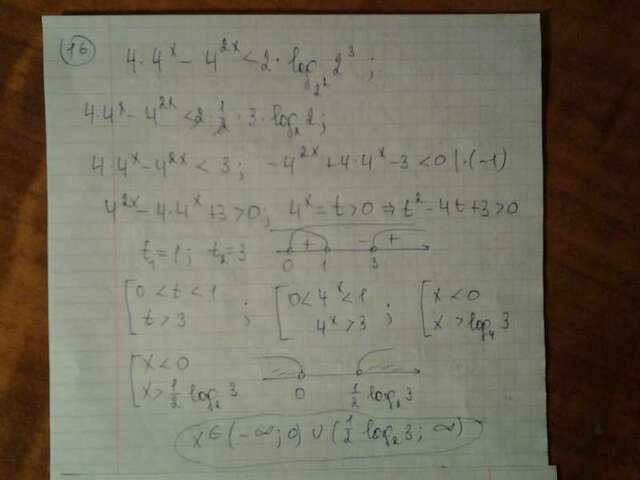 16
4·4ˣ - 4²ˣ < 2·log_{2²} 2³;
4·4ˣ - 4²ˣ < 2·1/2·3·log₂2;
4·4ˣ - 4²ˣ < 3; -4²ˣ + 4·4ˣ - 3 < 0 |·(-1)
4²ˣ - 4·4ˣ + 3 > 0; 4ˣ = t > 0 ⇒ t² - 4t + 3 > 0
t₁ = 1; t₂ = 3 + - +
0 1 3
[ 0 < t < 1 ; [ 0 < 4ˣ < 1 ; [ x < 0
t > 3 4ˣ > 3 x > log₄3
[ x < 0
x > 1/2 log₂3 0 1/2 log₂3
x ∈ (-∞; 0) ∪ (1/2 log₂3; ∞)